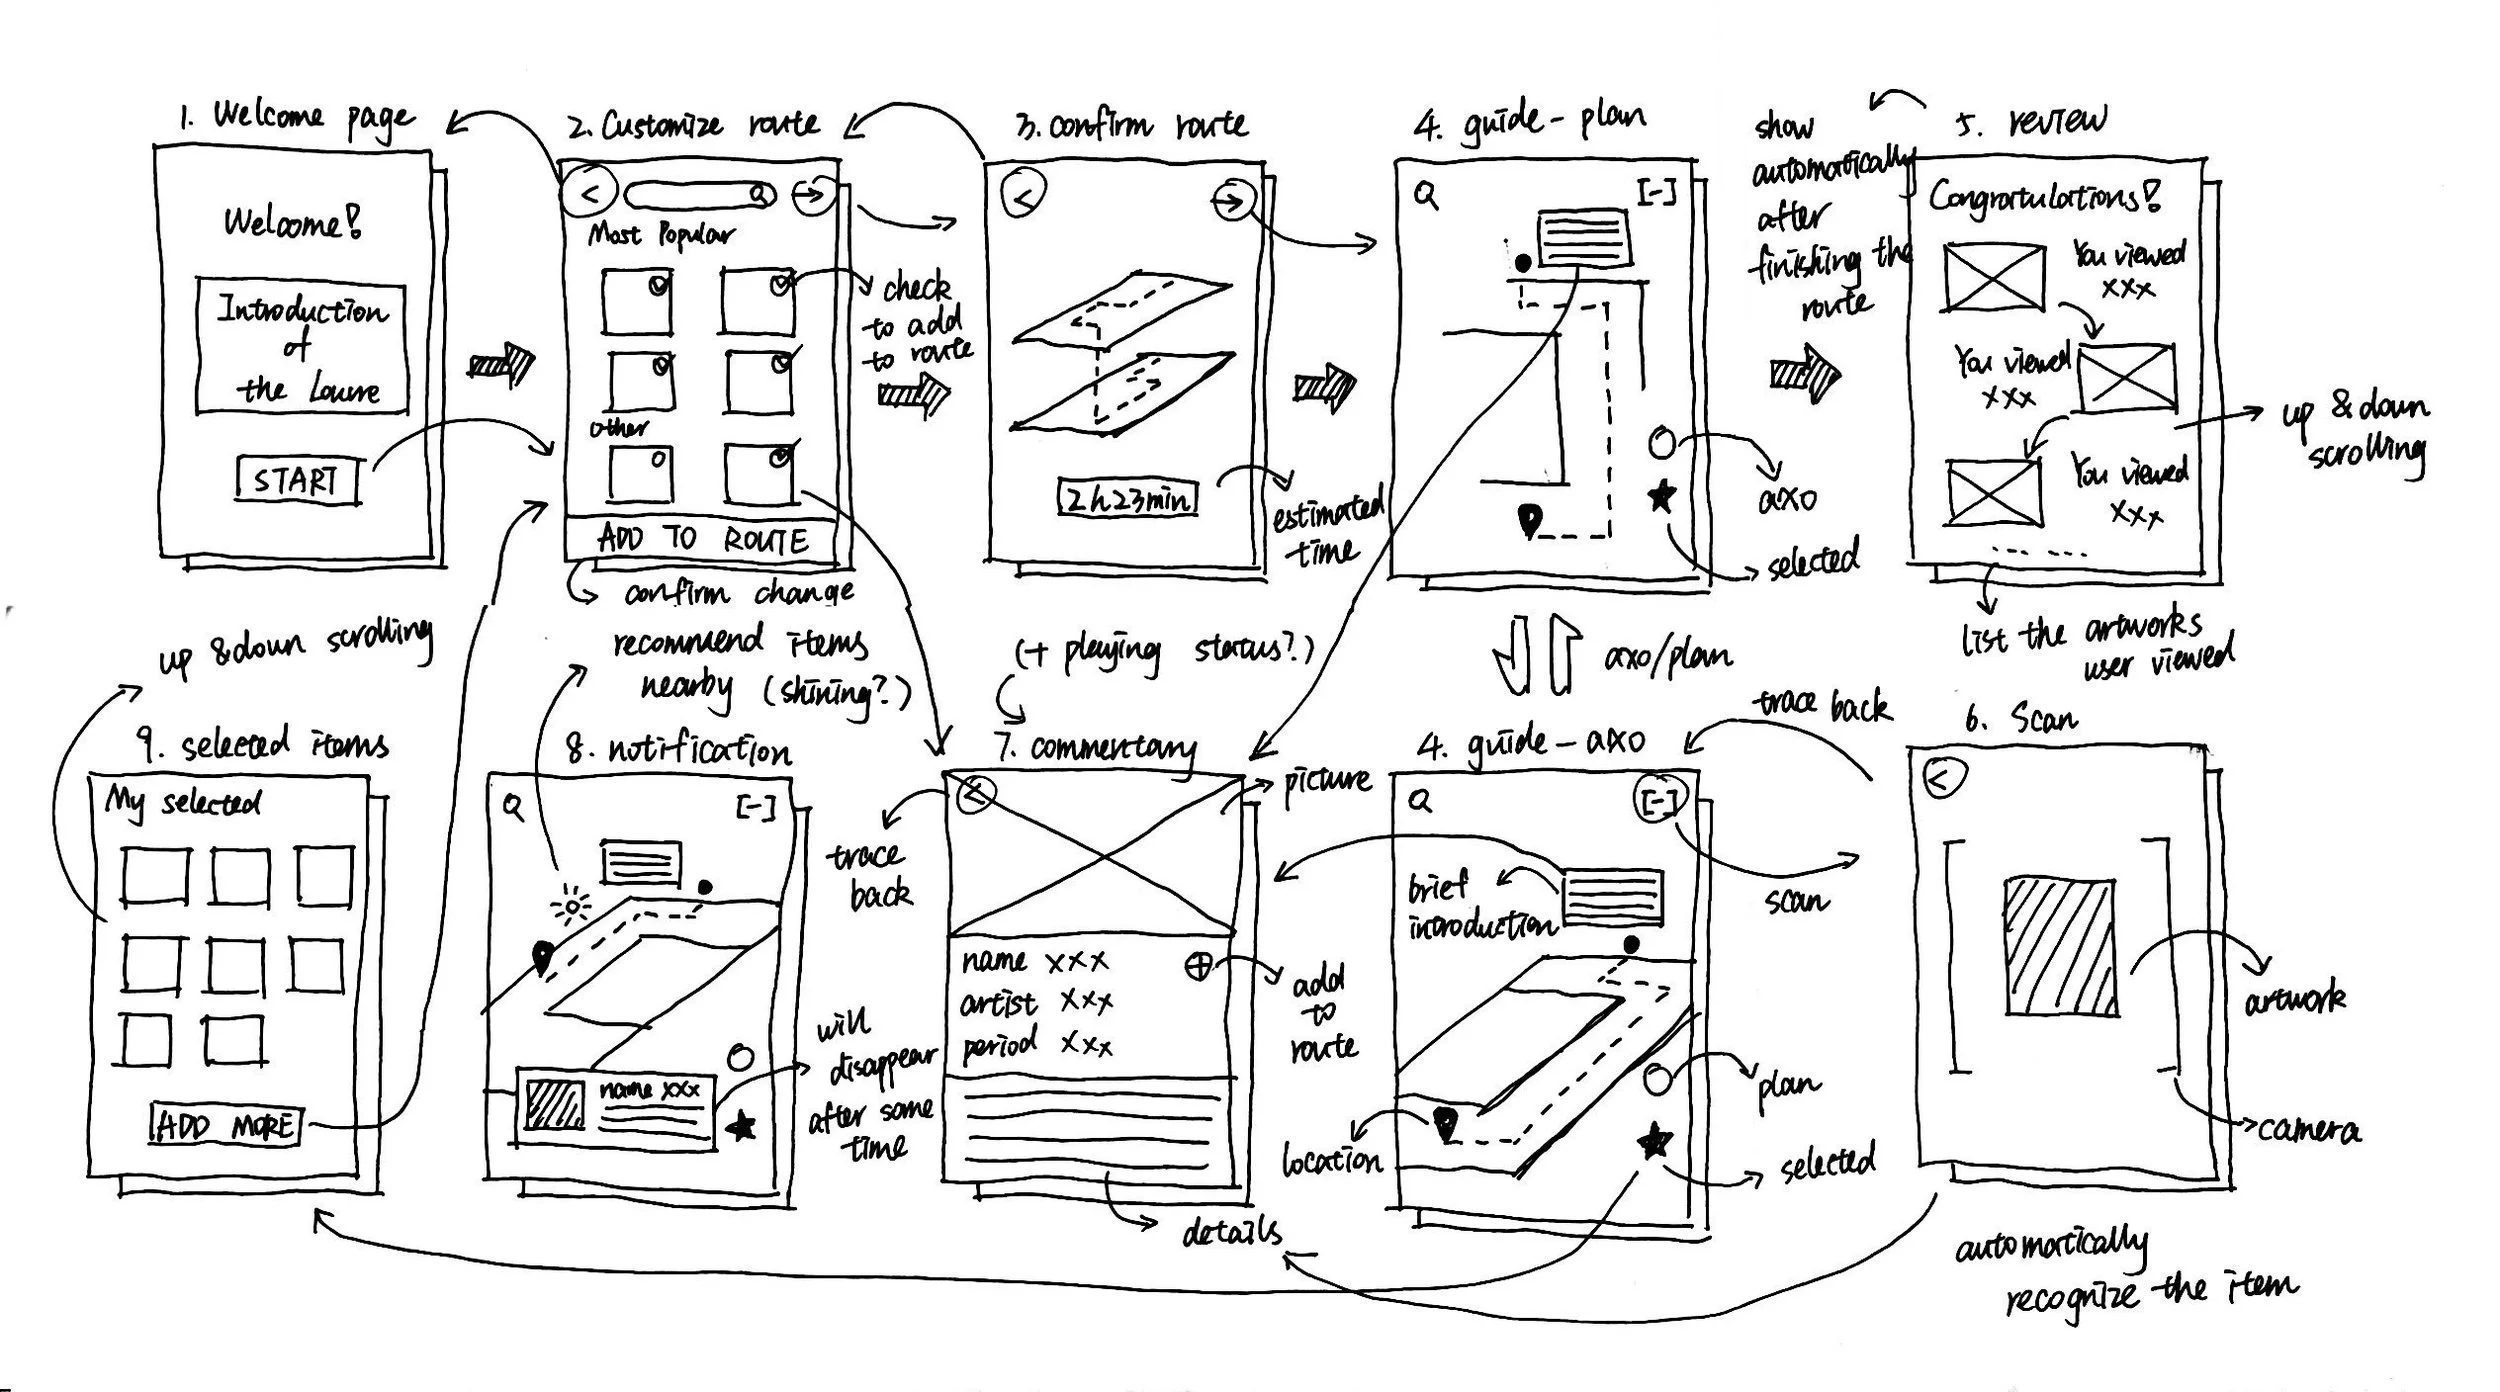 1. Welcome page
Welcome!
Introduction
of
the Louvre
START
2. Customize route
<
Most Popular
other
ADD TO ROUTE
check
to add
to route
confirm change
3. confirm route
<
2h23min
estimated
time
4. guide-plan
[-]
axo
selected
show
automatically
after
finishing the
route
5. review
Congratulations!
You viewed
xxx
You viewed
xxx
You viewed
xxx
up & down
scrolling
list the artworks
user viewed
up & down scrolling
9. selected items
My selected
ADD MORE
recommend items
nearby (shining?)
8. notification
[-]
name xxx
will
disappear
after some
time
(+ playing status?)
7. commentary
<
picture
trace
back
name xxx
artist xxx
period xxx
add
to
route
details
axo/plan
4. guide-axo
[-]
brief
introduction
location
plan
selected
trace back
scan
6. Scan
<
artwork
camera
automatically
recognize the item